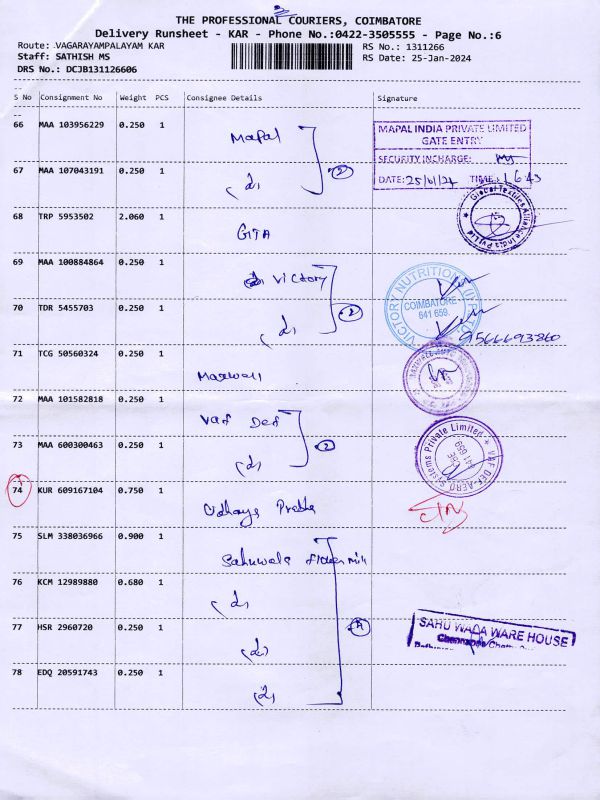 THE PROFESSIONAL COURIERS, COIMBATORE
Delivery Runsheet - KAR - Phone No.:0422-3505555 - Page No.:6
Route: VAGARAYAMPALAYAM KAR RS No.: 1311266
Staff: SATHISH MS RS Date: 25-Jan-2024
DRS No.: DCJB131126606
S No Consignment No Weight PCS Consignee Details Signature
66 MAA 103956229 0.250 1 Mapal
MAPAL INDIA PRIVATE LIMITED
GATE ENTRY
SECURITY INCHARGE:
DATE: 25/01/24 TIME: 16 43
67 MAA 107043191 0.250 1
2
68 TRP 5953502 2.060 1 GTA
Global Textiles Alliance India Pvt Ltd
69 MAA 100884864 0.250 1 Victory
VICTORY NUTRITION (I) P. LTD.
COIMBATORE
641 659.
70 TDR 5455703 0.250 1
2
9566693860
71 TCG 50560324 0.250 1 Maxwell
72 MAA 101582818 0.250 1 Vaf Def
73 MAA 600300463 0.250 1
2
VAF DEF-AERO Systems Private Limited
641 659
74 KUR 609167104 0.750 1 Udhaya Prabha
75 SLM 338036966 0.900 1 Sahuwala flour mill
76 KCM 12989880 0.680 1
77 HSR 2960720 0.250 1
4
SAHU WALA WARE HOUSE
78 EDQ 20591743 0.250 1